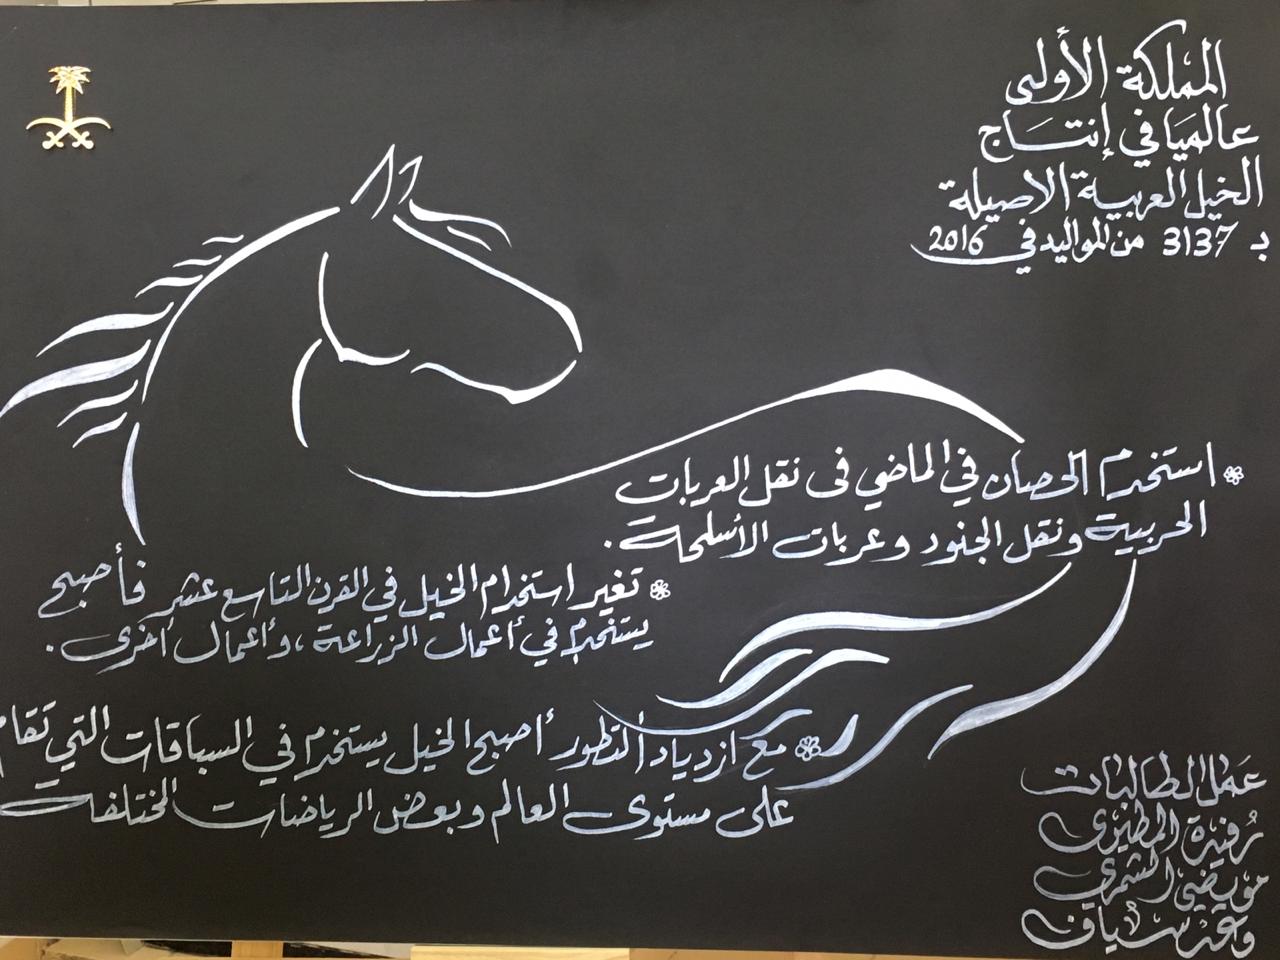 المملكة الأولى
عالميا في إنتاج
الخيل العربية الأصيلة
بـ 3137 من المواليد في 2016
استخدم الحصان في الماضي فى نقل العربات
الحربية ونقل الجنود وعربات الأسلحة .
تغير استخدام الخيل في القرن التاسع عشر فأصبح
يستخدم في أعمال الزراعة ، وأعمال أخرى .
مع ازدياد التطور أصبح الخيل يستخدم في السباقات التي تقام
على مستوى العالم وبعض الرياضات المختلفة
عمل الطالبات
المطيري
الشمري